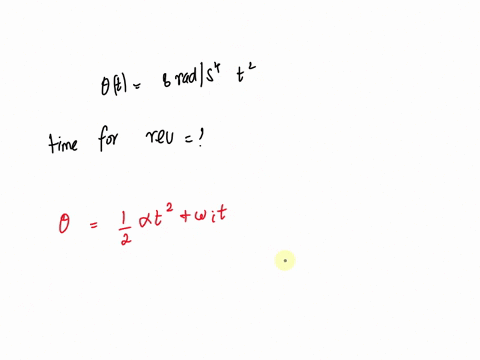 θ(t) = 8 rad/s⁴ t²
time for rev = ?
θ = 1/2 αt² + ωit